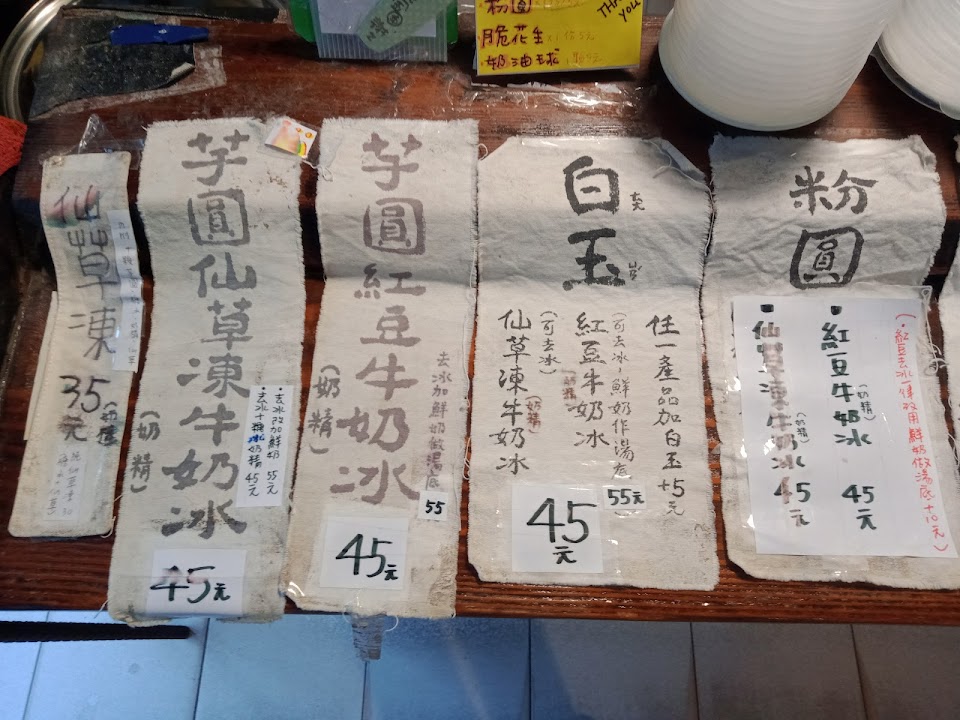 粉圓
脆花生
奶油球
THANK
YOU
仙草凍
35元
(奶精)
芋圓仙草凍牛奶冰
(奶精)
•去冰改加鮮奶 55元
去冰+糖水奶精 45元
45元
芋圓紅豆牛奶冰
(奶精)
去冰加鮮奶做湯底
55
45元
白玉
任一產品加白玉+5元
(可去冰,鮮奶作湯底)
55元
紅豆牛奶冰
(奶精)
(可去冰)
仙草凍牛奶冰
(奶精)
45元
粉圓
(•紅豆去冰一律改用鮮奶做湯底+10元)
紅豆牛奶冰
(奶精)
45元
仙草凍牛奶冰
(奶精)
45元